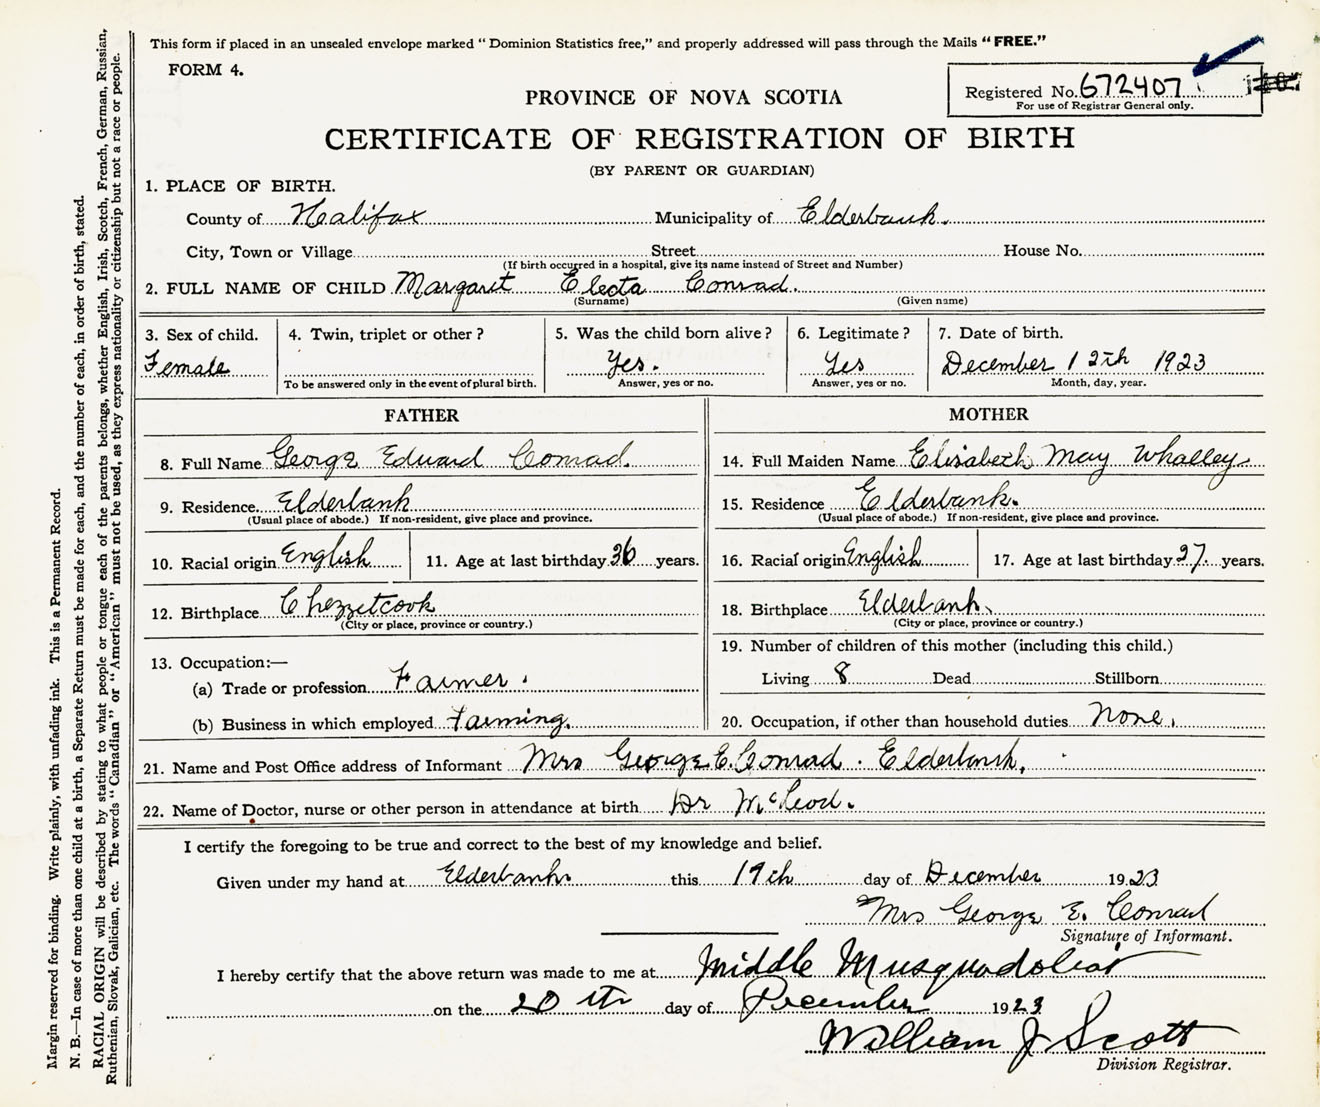 This form if placed in an unsealed envelope marked " Dominion Statistics free," and properly addressed will pass through the Mails "FREE."
FORM 4.
Registered No. 672407
For use of Registrar General only.
PROVINCE OF NOVA SCOTIA
CERTIFICATE OF REGISTRATION OF BIRTH
(BY PARENT OR GUARDIAN)
1. PLACE OF BIRTH.
County of Halifax Municipality of Elderbank.
City, Town or Village Street House No.
(If birth occurred in a hospital, give its name instead of Street and Number)
2. FULL NAME OF CHILD Margaret Electa Conrad.
(Surname) (Given name)
3. Sex of child. 4. Twin, triplet or other ? 5. Was the child born alive ? 6. Legitimate ? 7. Date of birth.
Female Yes. Yes December 12th 1923
To be answered only in the event of plural birth. Answer, yes or no. Answer, yes or no. Month, day, year.
FATHER MOTHER
8. Full Name George Edward Conrad. 14. Full Maiden Name Elisabeth May Whalley
9. Residence Elderbank 15. Residence Elderbank.
(Usual place of abode.) If non-resident, give place and province. (Usual place of abode.) If non-resident, give place and province.
10. Racial origin English 11. Age at last birthday 36 years. 16. Racial origin English 17. Age at last birthday 37. years.
12. Birthplace Chezzetcook 18. Birthplace Elderbank.
(City or place, province or country.) (City or place, province or country.)
19. Number of children of this mother (including this child.)
13. Occupation:—
(a) Trade or profession Farmer. Living 8 Dead Stillborn
(b) Business in which employed Farming. 20. Occupation, if other than household duties None.
21. Name and Post Office address of Informant Mrs George E. Conrad. Elderbank.
22. Name of Doctor, nurse or other person in attendance at birth Dr McLeod.
I certify the foregoing to be true and correct to the best of my knowledge and belief.
Given under my hand at Elderbank this 19th day of December 1923
Mrs George E. Conrad
Signature of Informant.
I hereby certify that the above return was made to me at Middle Musquodoboit
on the 20th day of December 1923
William J Scott
Division Registrar.
Margin reserved for binding. Write plainly, with unfading ink. This is a Permanent Record.
N. B.—In case of more than one child at a birth, a Separate Return must be made for each, and the number of each, in order of birth, stated.
RACIAL ORIGIN will be described by stating to what people or tongue each of the parents belongs, whether English, Irish, Scotch, French, German, Russian,
Ruthenian, Slovak, Galician, etc. The words "Canadian" or "American" must not be used, as they express nationality or citizenship but not a race or people.